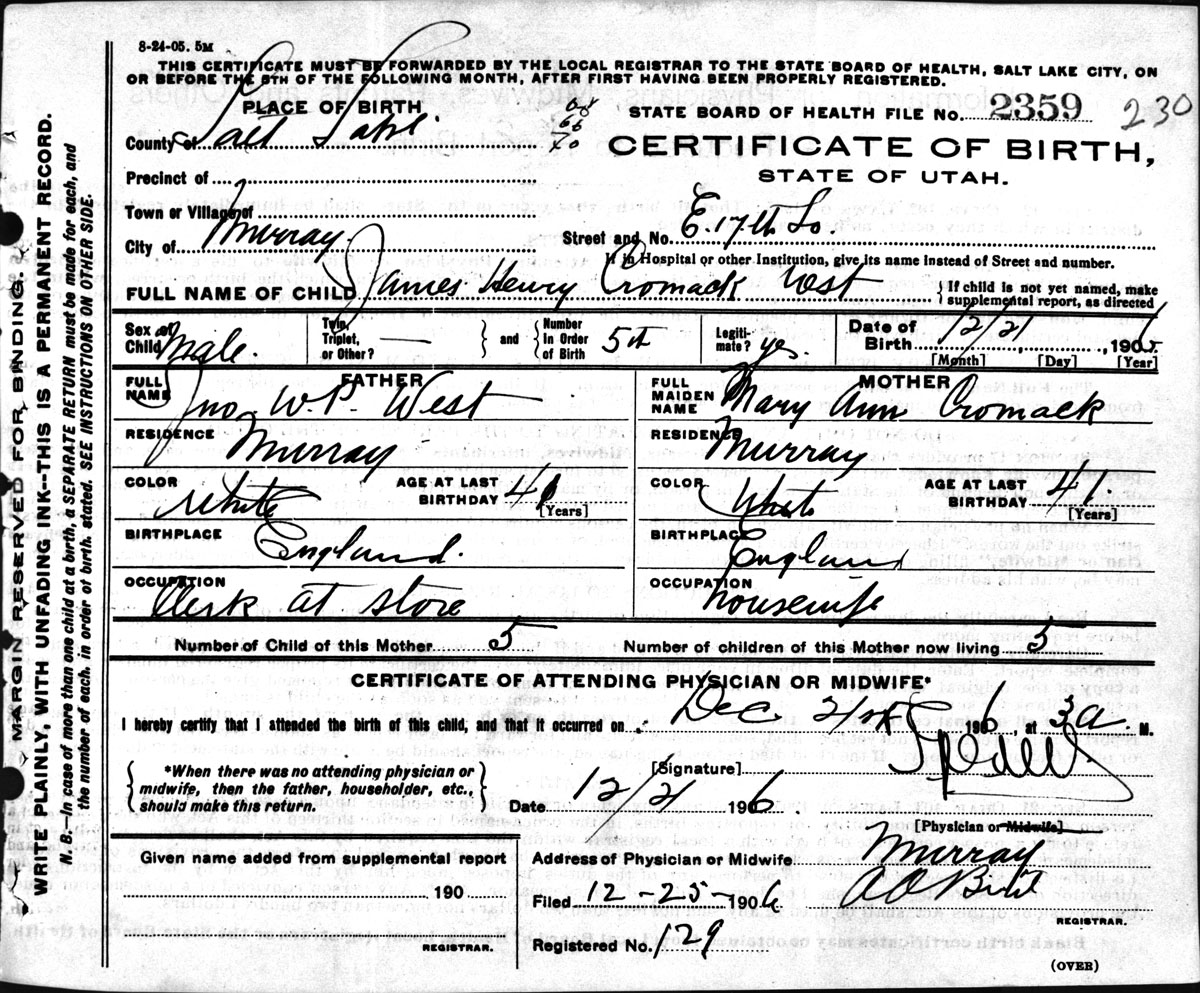 8-24-05. 5M
THIS CERTIFICATE MUST BE FORWARDED BY THE LOCAL REGISTRAR TO THE STATE BOARD OF HEALTH, SALT LAKE CITY, ON
OR BEFORE THE 5TH OF THE FOLLOWING MONTH, AFTER FIRST HAVING BEEN PROPERLY REGISTERED.
PLACE OF BIRTH
STATE BOARD OF HEALTH FILE No. 2359 230
County of Salt Lake
CERTIFICATE OF BIRTH,
STATE OF UTAH.
Precinct of
Town or Village of
City of Murray
Street and No. E. 17th So.
If in Hospital or other Institution, give its name instead of Street and number.
FULL NAME OF CHILD James Henry Cromack West
{If child is not yet named, make
supplemental report, as directed
Sex of Child Male.
Twin, Triplet, or Other? —
and
Number in Order of Birth 5th
Legiti-mate? yes.
Date of Birth 12/21, 1906
[Month] [Day] [Year]
FATHER
FULL NAME Jno W.P. West
RESIDENCE Murray
COLOR White
AGE AT LAST BIRTHDAY
[Years]
BIRTHPLACE England.
OCCUPATION Clerk at store
MOTHER
FULL MAIDEN NAME Mary Ann Cromack
RESIDENCE Murray
COLOR White
AGE AT LAST BIRTHDAY 41
[Years]
BIRTHPLACE England
OCCUPATION housewife
Number of Child of this Mother 5
Number of children of this Mother now living 5
CERTIFICATE OF ATTENDING PHYSICIAN OR MIDWIFE*
I hereby certify that I attended the birth of this child, and that it occurred on Dec 21st 1906, at 3 a. M.
{*When there was no attending physician or
midwife, then the father, householder, etc.,
should make this return.}
[Signature]
Date 12/21 1906
[Physician or Midwife]
Given name added from supplemental report
190
REGISTRAR.
Address of Physician or Midwife Murray
Filed 12-25-1906
REGISTRAR.
Registered No. 129
(OVER)
MARGIN RESERVED FOR BINDING.
WRITE PLAINLY, WITH UNFADING INK--THIS IS A PERMANENT RECORD.
N. B.—In case of more than one child at a birth, a SEPARATE RETURN must be made for each, and
the number of each, in order of birth, stated. SEE INSTRUCTIONS ON OTHER SIDE.